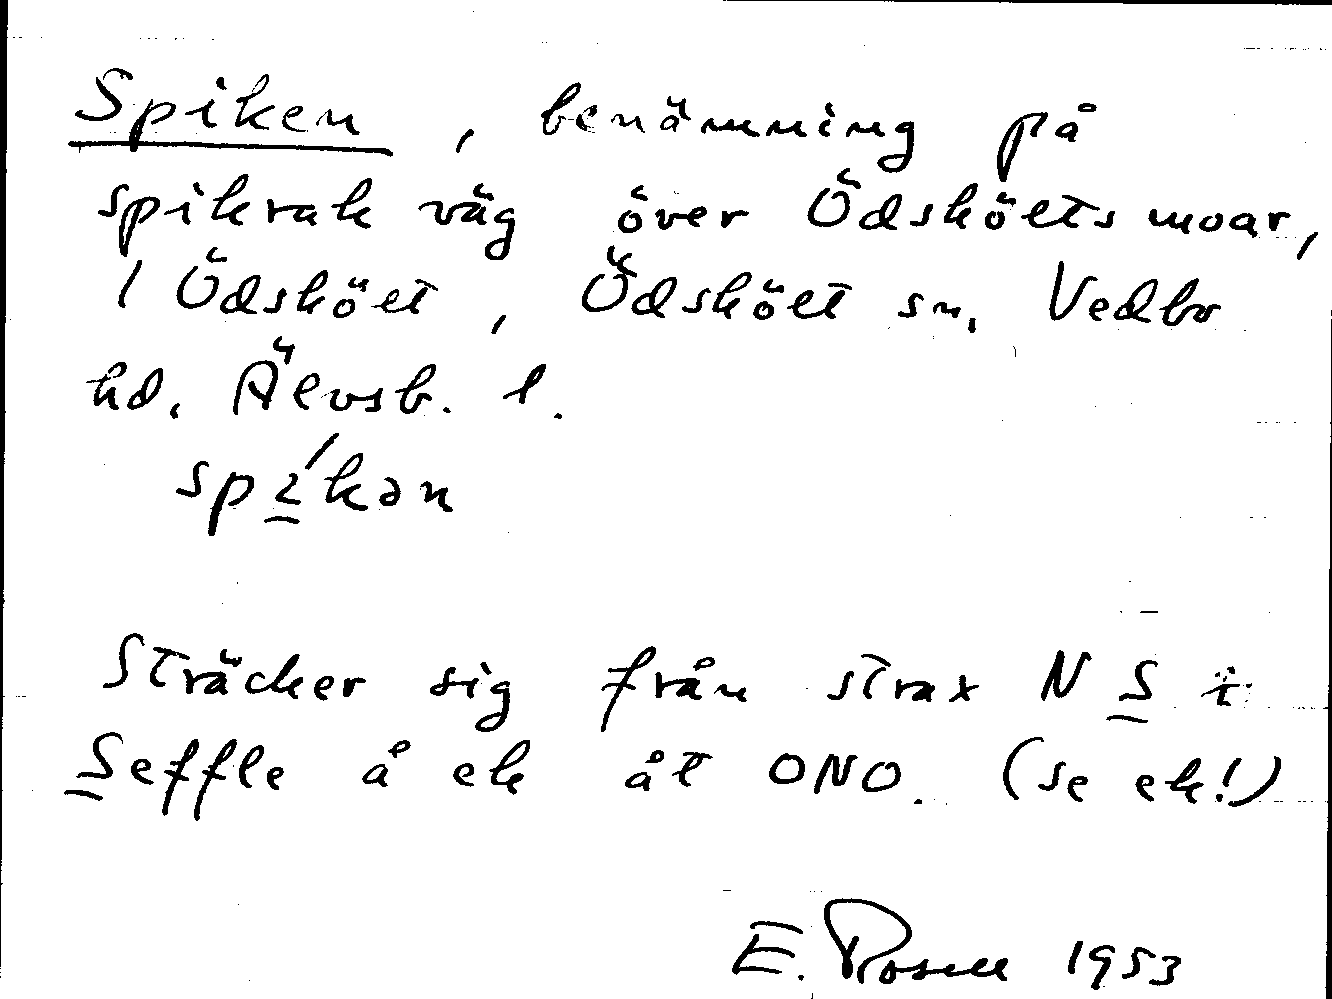 Spiken, benämning på
spikrak väg över Ödskölts moar,
i Ödskölt, Ödskölt sn, Vedbo
hd. Älvsb. l.
spíkən
Sträcker sig från strax N S i
Seffle å ek åt ONO. (se ek!)
E. Rosell 1953